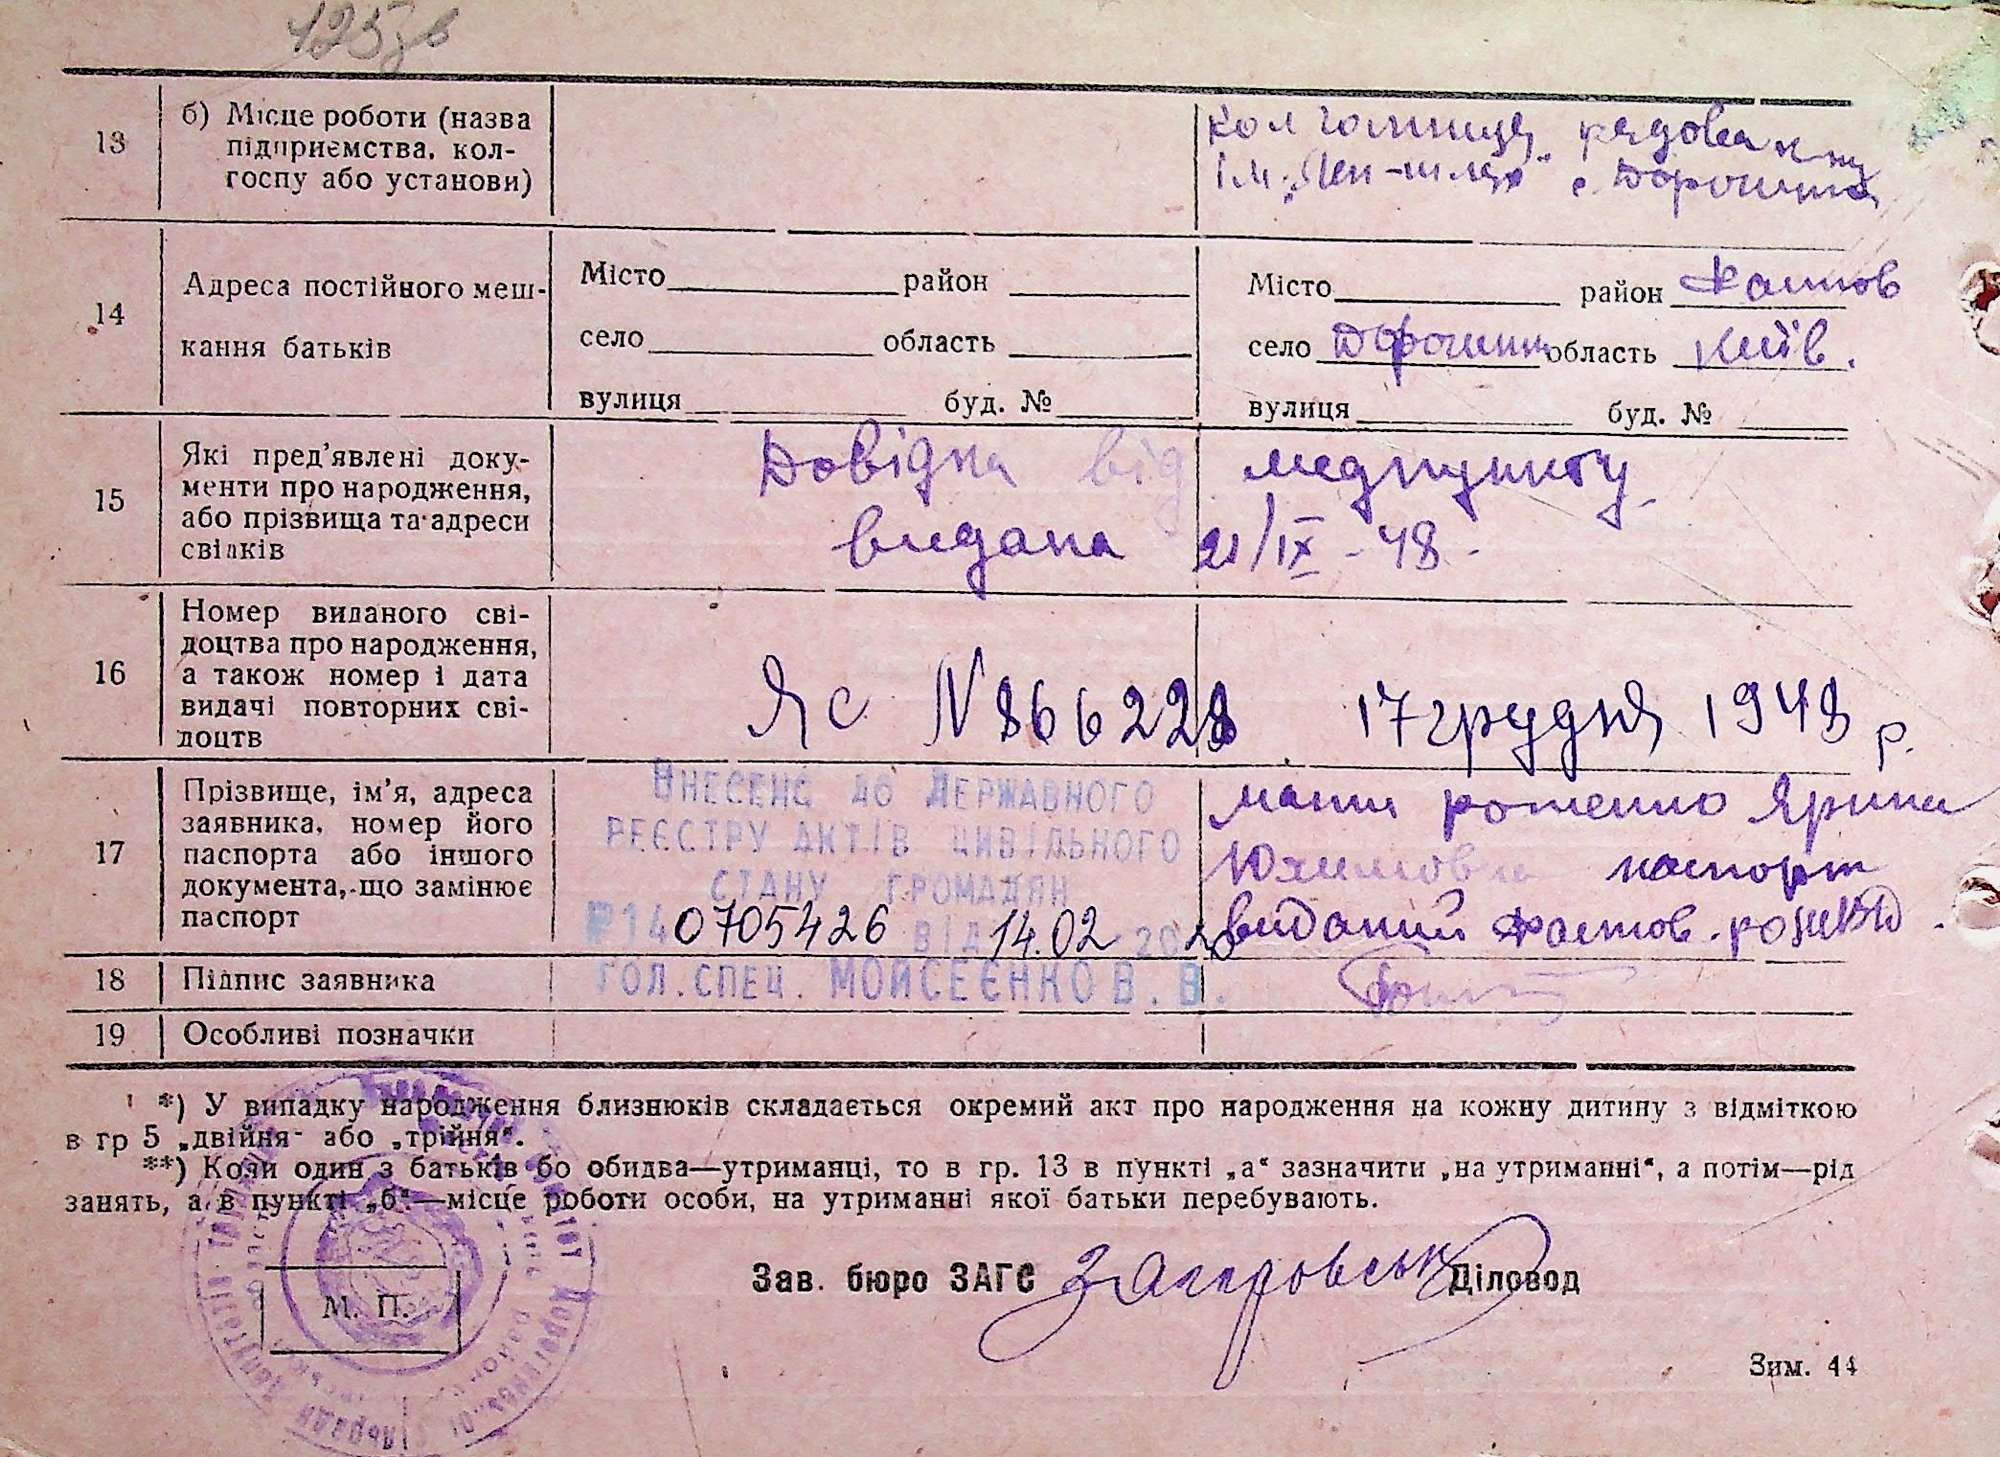 125зв
13
б) Місце роботи (назва
підприємства, кол-
госпу або установи)
колгоспниця рядова к-ну
ім. „Лен-шлях" с. Дорогинка
14
Адреса постійного меш-
кання батьків
Місто район
село область
вулиця буд. №
Місто район Фастов
село Дорогинка область Київ.
вулиця буд. №
15
Які пред'явлені доку-
менти про народження,
або прізвища та адреси
свідків
Довідка від медпункту
видана 21/IX - 48.
16
Номер виданого сві-
доцтва про народження,
а також номер і дата
видачі повторних сві-
доцтв
Яс N 866228 17 грудня 1948 р.
17
Прізвище, ім'я, адреса
заявника, номер його
паспорта або іншого
документа, що замінює
паспорт
Внесено до Державного
реєстру актів цивільного
стану громадян
№140705426 від 14.02 2020
гол.спец. Мойсеєнко В.В.
мати роженко Ярина
Юхимовна паспорт
виданий Фастов. РОНКВД.
18
Підпис заявника
19
Особливі позначки
*) У випадку народження близнюків складається окремий акт про народження на кожну дитину з відміткою
в гр 5 „двійня" або „трійня".
**) Коли один з батьків бо обидва—утриманці, то в гр. 13 в пункті „а" зазначити „на утриманні", а потім—рід
занять, а в пункті „б"—місце роботи особи, на утриманні якої батьки перебувають.
М. П.
Зав. бюро ЗАГС Діловод
Зим. 44